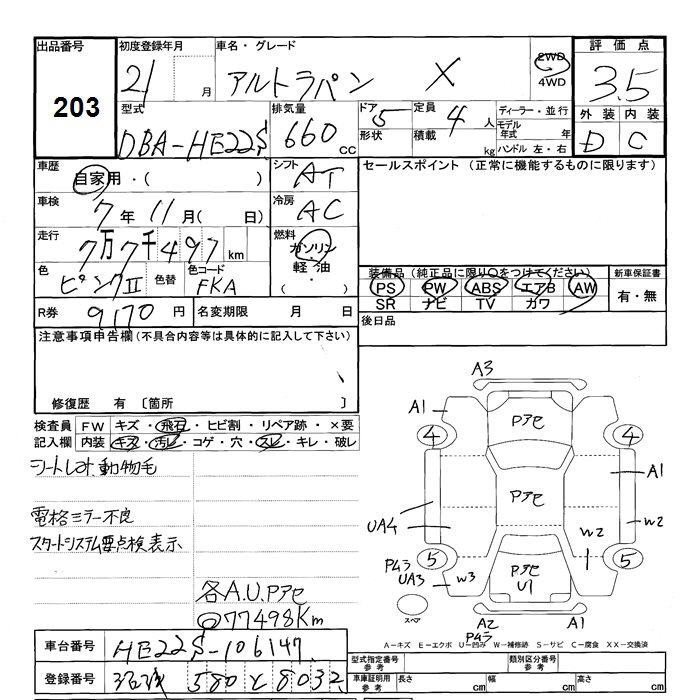 出品番号 初度登録年月 車名・グレード 評価点
203 21 月 アルトラパン X 2WD 4WD 3.5
型式 排気量 ドア 5 定員 4 人 ディーラー・並行 外装 内装
DBA-HE22S 660 cc 形状 積載 kg モデル年式 年 ハンドル 左・右 D C
車歴 自家用・( ) シフト AT セールスポイント (正常に機能するものに限ります)
車検 7年 11月( 日) 冷房 AC
走行 7万7千497 km 燃料 ガソリン・軽油 ( ・ )
色 ピンクII 色替 色コード FKA
装備品(純正品に限り○をつけてください) 新車保証書
PS PW ABS エアB AW 有・無
SR ナビ TV カワ
R券 9170 円 名変期限 月 日 後日品
注意事項申告欄(不具合内容等は具体的に記入して下さい)
修復歴 有 〔箇所 〕
検査員 FW キズ・飛石・ヒビ割・リペア跡・×要
記入欄 内装 キズ・汚レ・コゲ・穴・スレ・キレ・破レ
シートしみ、動物毛
電格ミラー不良
スタートシステム要点検表示
各A.U.Pアセ
◎77498Km
A3
A1 Pアセ
4 4
Pアセ A1
UA4 W2
W2
Pムラ 5 5
UA3 W3 Pアセ
U1
スペア A2 A1
Pムラ
A-キズ E-エクボ U-凹み W-補修跡 S-サビ C-腐食 XX-交換済
車台番号 HE22S-106147 型式指定番号 参考 類別区分番号 参考
登録番号 580 と 8032 車庫証明用 参考 長さ cm 幅 cm 高さ cm